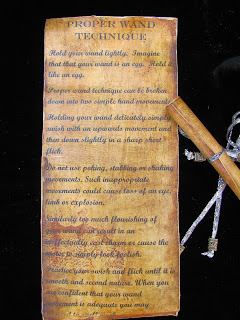 PROPER WAND
TECHNIQUE
Hold your wand lightly. Imagine
that that your wand is an egg. Hold it
like an egg.
Proper wand technique can be broken
down into two simple hand movements
Holding your wand delicately simply
swish with an upwards movement and
then down slightly in a sharp short
flick.
Do not use poking, stabbing or shaking
movements. Such inappropriate
movements could cause loss of an eye,
limb or explosion.
Similarly too much flourishing of
your wand can result in an
ineffectually cast charm or cause the
to simply look foolish.
Practice your swish and flick until it is
smooth and second nature. When you
are confident that your wand
movement is adequate you may